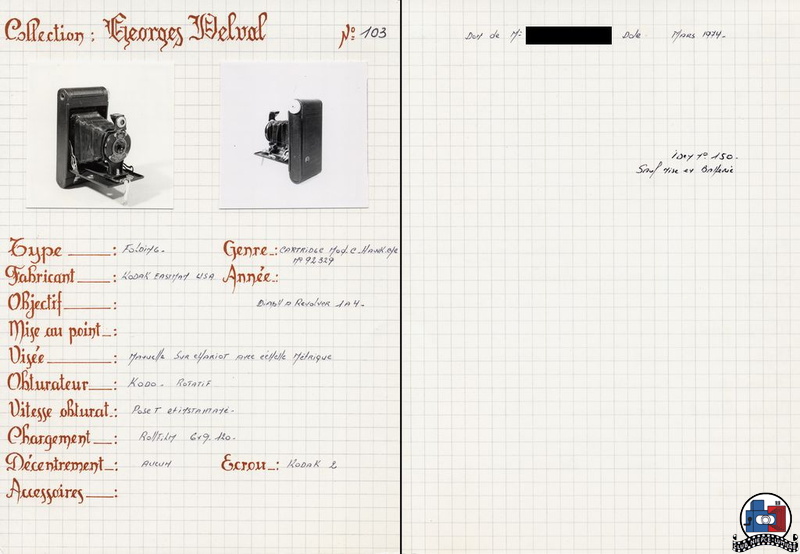 Collection : Georges Delval N° 103
Type : Folding -
Genre : CARTRIDGE Mod. C. HAWK.EYE
N° 92329
Fabricant : KODAK EASTMAN USA
Année :
Objectif : Revolver 1 à 4 -
Mise au point :
Visée : Manuelle Sur chariot avec échelle Métrique
Obturateur : KODO - ROTATIF
Vitesse obturat : Pose T et instantané -
Chargement : Rollfilm 6x9. 120 -
Décentrement : AUCUN
Ecrou : KODAK 2
Accessoires :
Don de Mr Date Mars 1974 -
N° 150 -
Sauf